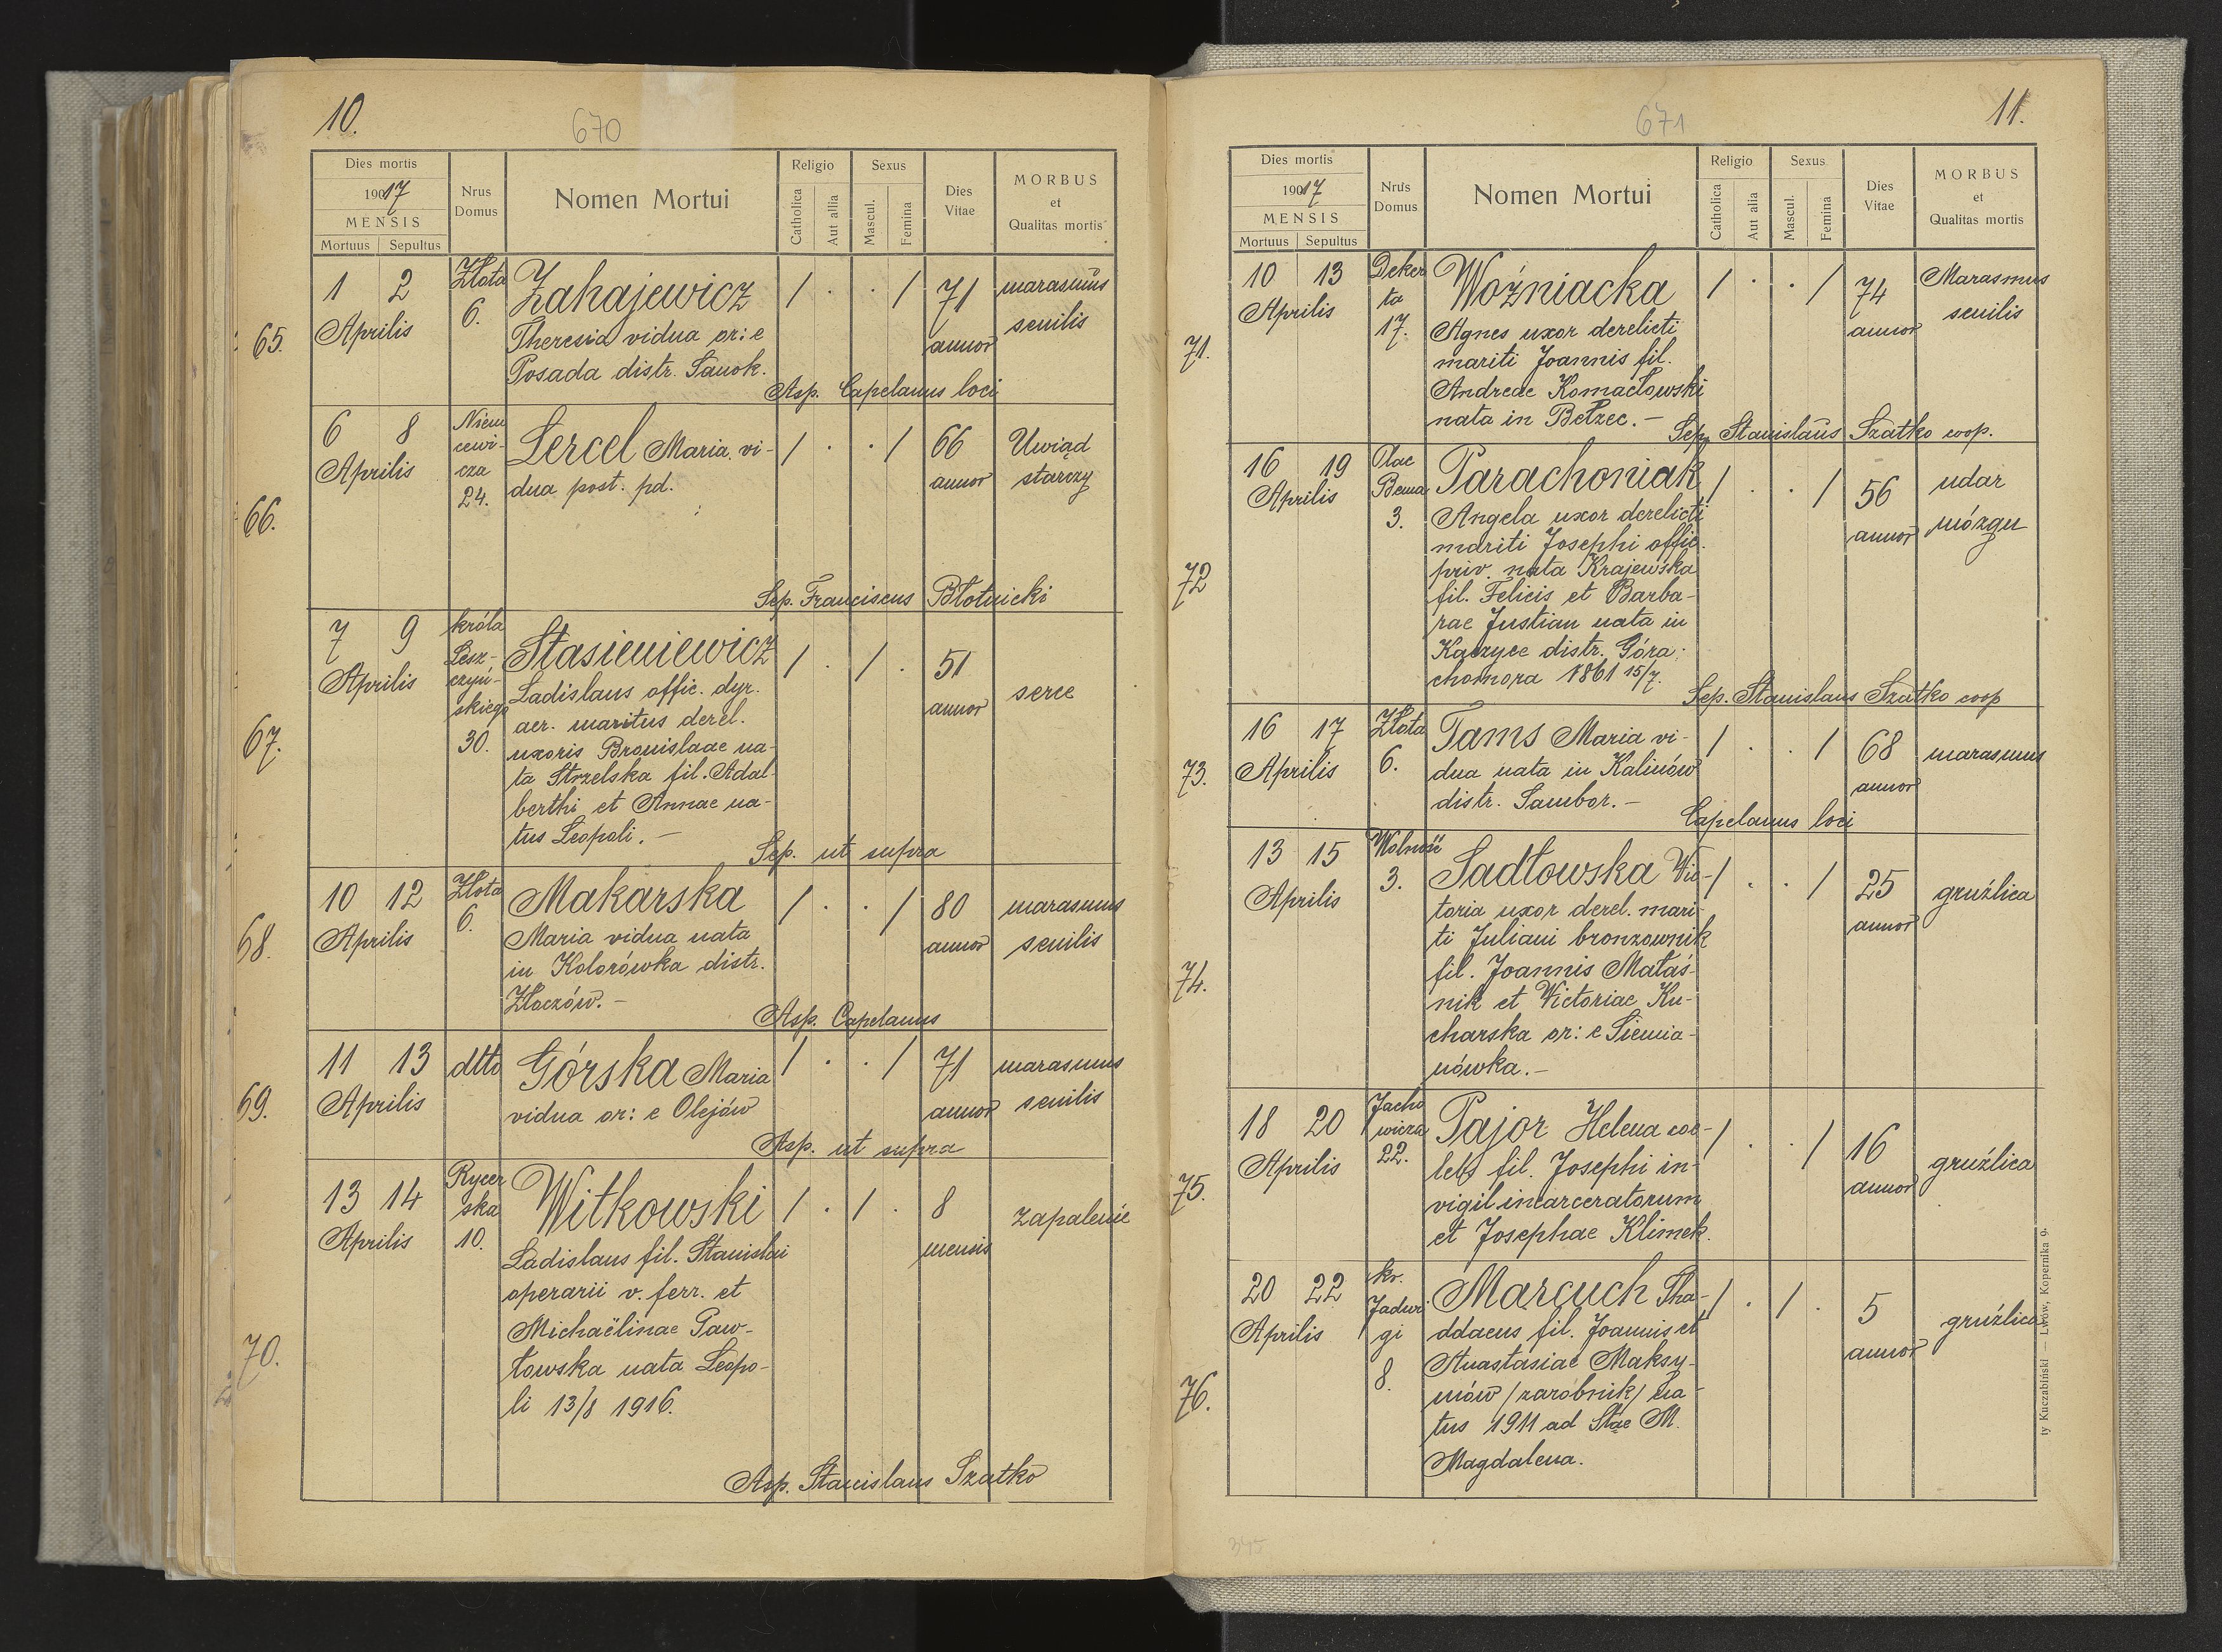 10.
670
Dies mortis
1917
MENSIS
Mortuus Sepultus
Nrus Domus
Nomen Mortui
Religio
Catholica
Aut allia
Sexus
Mascul.
Femina
Dies Vitae
MORBUS
et
Qualitas mortis
65.
1 2
Aprilis
Złota
6.
Zahajewicz
Theresia vidua or: e
Posada distr. Sanok.
/ . . /
71
annor
marasmus
senilis
Asp. Capelanus loci
66.
6 8
Aprilis
Niem
cewi-
cza
24.
Lercel Maria vi-
dua post. pd.
/ . . /
66
annor
Uwiąd
starczy
Sep. Franciscus Błotnicki
67.
7 9
Aprilis
króla
Lesz-
czyń-
skiego
30.
Stasieniewicz
Ladislaus offic. dyr.
aer. maritus derel.
uxoris Bronislaae na-
ta Strzelska fil. Adal-
berthi et Annae na-
tus Leopoli. -
/ . / .
51
annor
serce
Sep. ut supra
68.
10 12
Aprilis
Złota
6.
Makarska
Maria vidua nata
in Kolorówka distr.
Złoczów. -
/ . . /
80
annor
marasmus
senilis
Asp. Capelanus
69.
11 13
Aprilis
dtto
Górska Maria
vidua or: e Olejów
/ . . /
71
annor
marasmus
senilis
Asp. ut supra
70.
13 14
Aprilis
Rycer
ska
10.
Witkowski
Ladislaus fil. Stanislai
operarii v. ferr. et
Michaëlinae Paw-
łowska nata Leopo-
li 13/8 1916.
/ . / .
8
mensis
zapalenie
Asp. Stanislaus Szatko
11.
671
Dies mortis
1917
MENSIS
Mortuus Sepultus
Nrus Domus
Nomen Mortui
Religio
Catholica
Aut alia
Sexus
Mascul.
Femina
Dies Vitae
MORBUS
et
Qualitas mortis
71.
10 13
Aprilis
Deker
ta
17.
Woźniacka
Agnes uxor derelicti
mariti Joannis fil.
Andreae Komacłowski
nata in Bełzec. -
/ . . /
74
annor
Marasmus
senilis
Sep. Stanislaus Szatko coop.
72
16 19
Aprilis
Plac
Bema
3.
Parachoniak
Angela uxor derelicti
mariti Josephi offic.
priv. nata Krajewska
fil. Felicis et Barba-
rae Justian nata in
Kaczyce distr. Góra
chomora 1861 15/7.
/ . . /
56
annor
udar
mózgu
Sep. Stanislaus Szatko coop
73.
16 17
Aprilis
Złota
6.
Tams Maria vi-
dua nata in Kalinów
distr. Sambor. -
/ . . /
68
annor
marasmus
Capelanus loci
74.
13 15
Aprilis
Wolność
3.
Sadłowska Vic-
toria uxor derel. mari-
ti Juliani bronzownik
fil. Joannis Mataś-
nik et Victoriae Ku-
charska or: e Siemia-
nówka. -
/ . . /
25
annor
gruźlica
75.
18 20
Aprilis
Jacho
wicza
22.
Pajor Helena coe-
lebs fil. Josephi in-
vigil incarceratorum
et Josephae Klimek.
/ . . /
16
annor
gruźlica
76.
20 22
Aprilis
kr.
Jadwi
gi
8.
Marcuch Tha-
ddaeus fil. Joannis et
Anastasiae Maksy-
mów /zarobnik/ na-
tus 1911 ad Stae M.
Magdalena.
/ . / .
5
annor
gruźlica
ty Kuczabiński — Lwów, Kopernika 9.
345